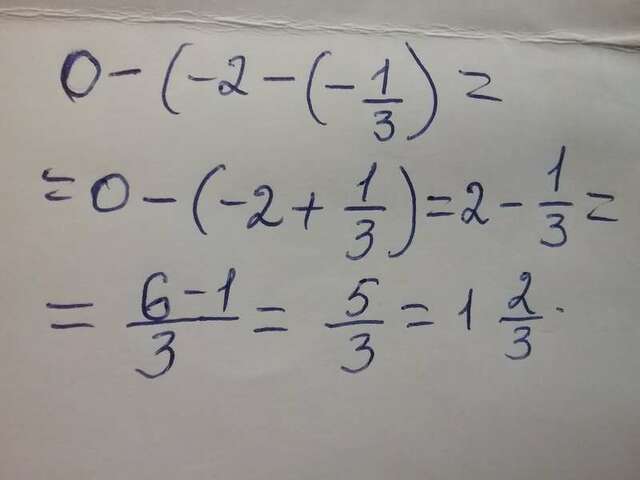 0 - (-2 - (-1/3) =
= 0 - (-2 + 1/3) = 2 - 1/3 =
= 6-1/3 = 5/3 = 1 2/3.